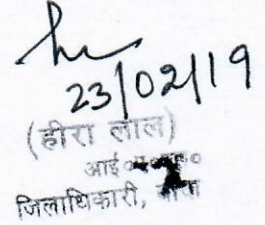 23/02/19
(हीरा लाल)
आई०ए०एस०
जिलाधिकारी,